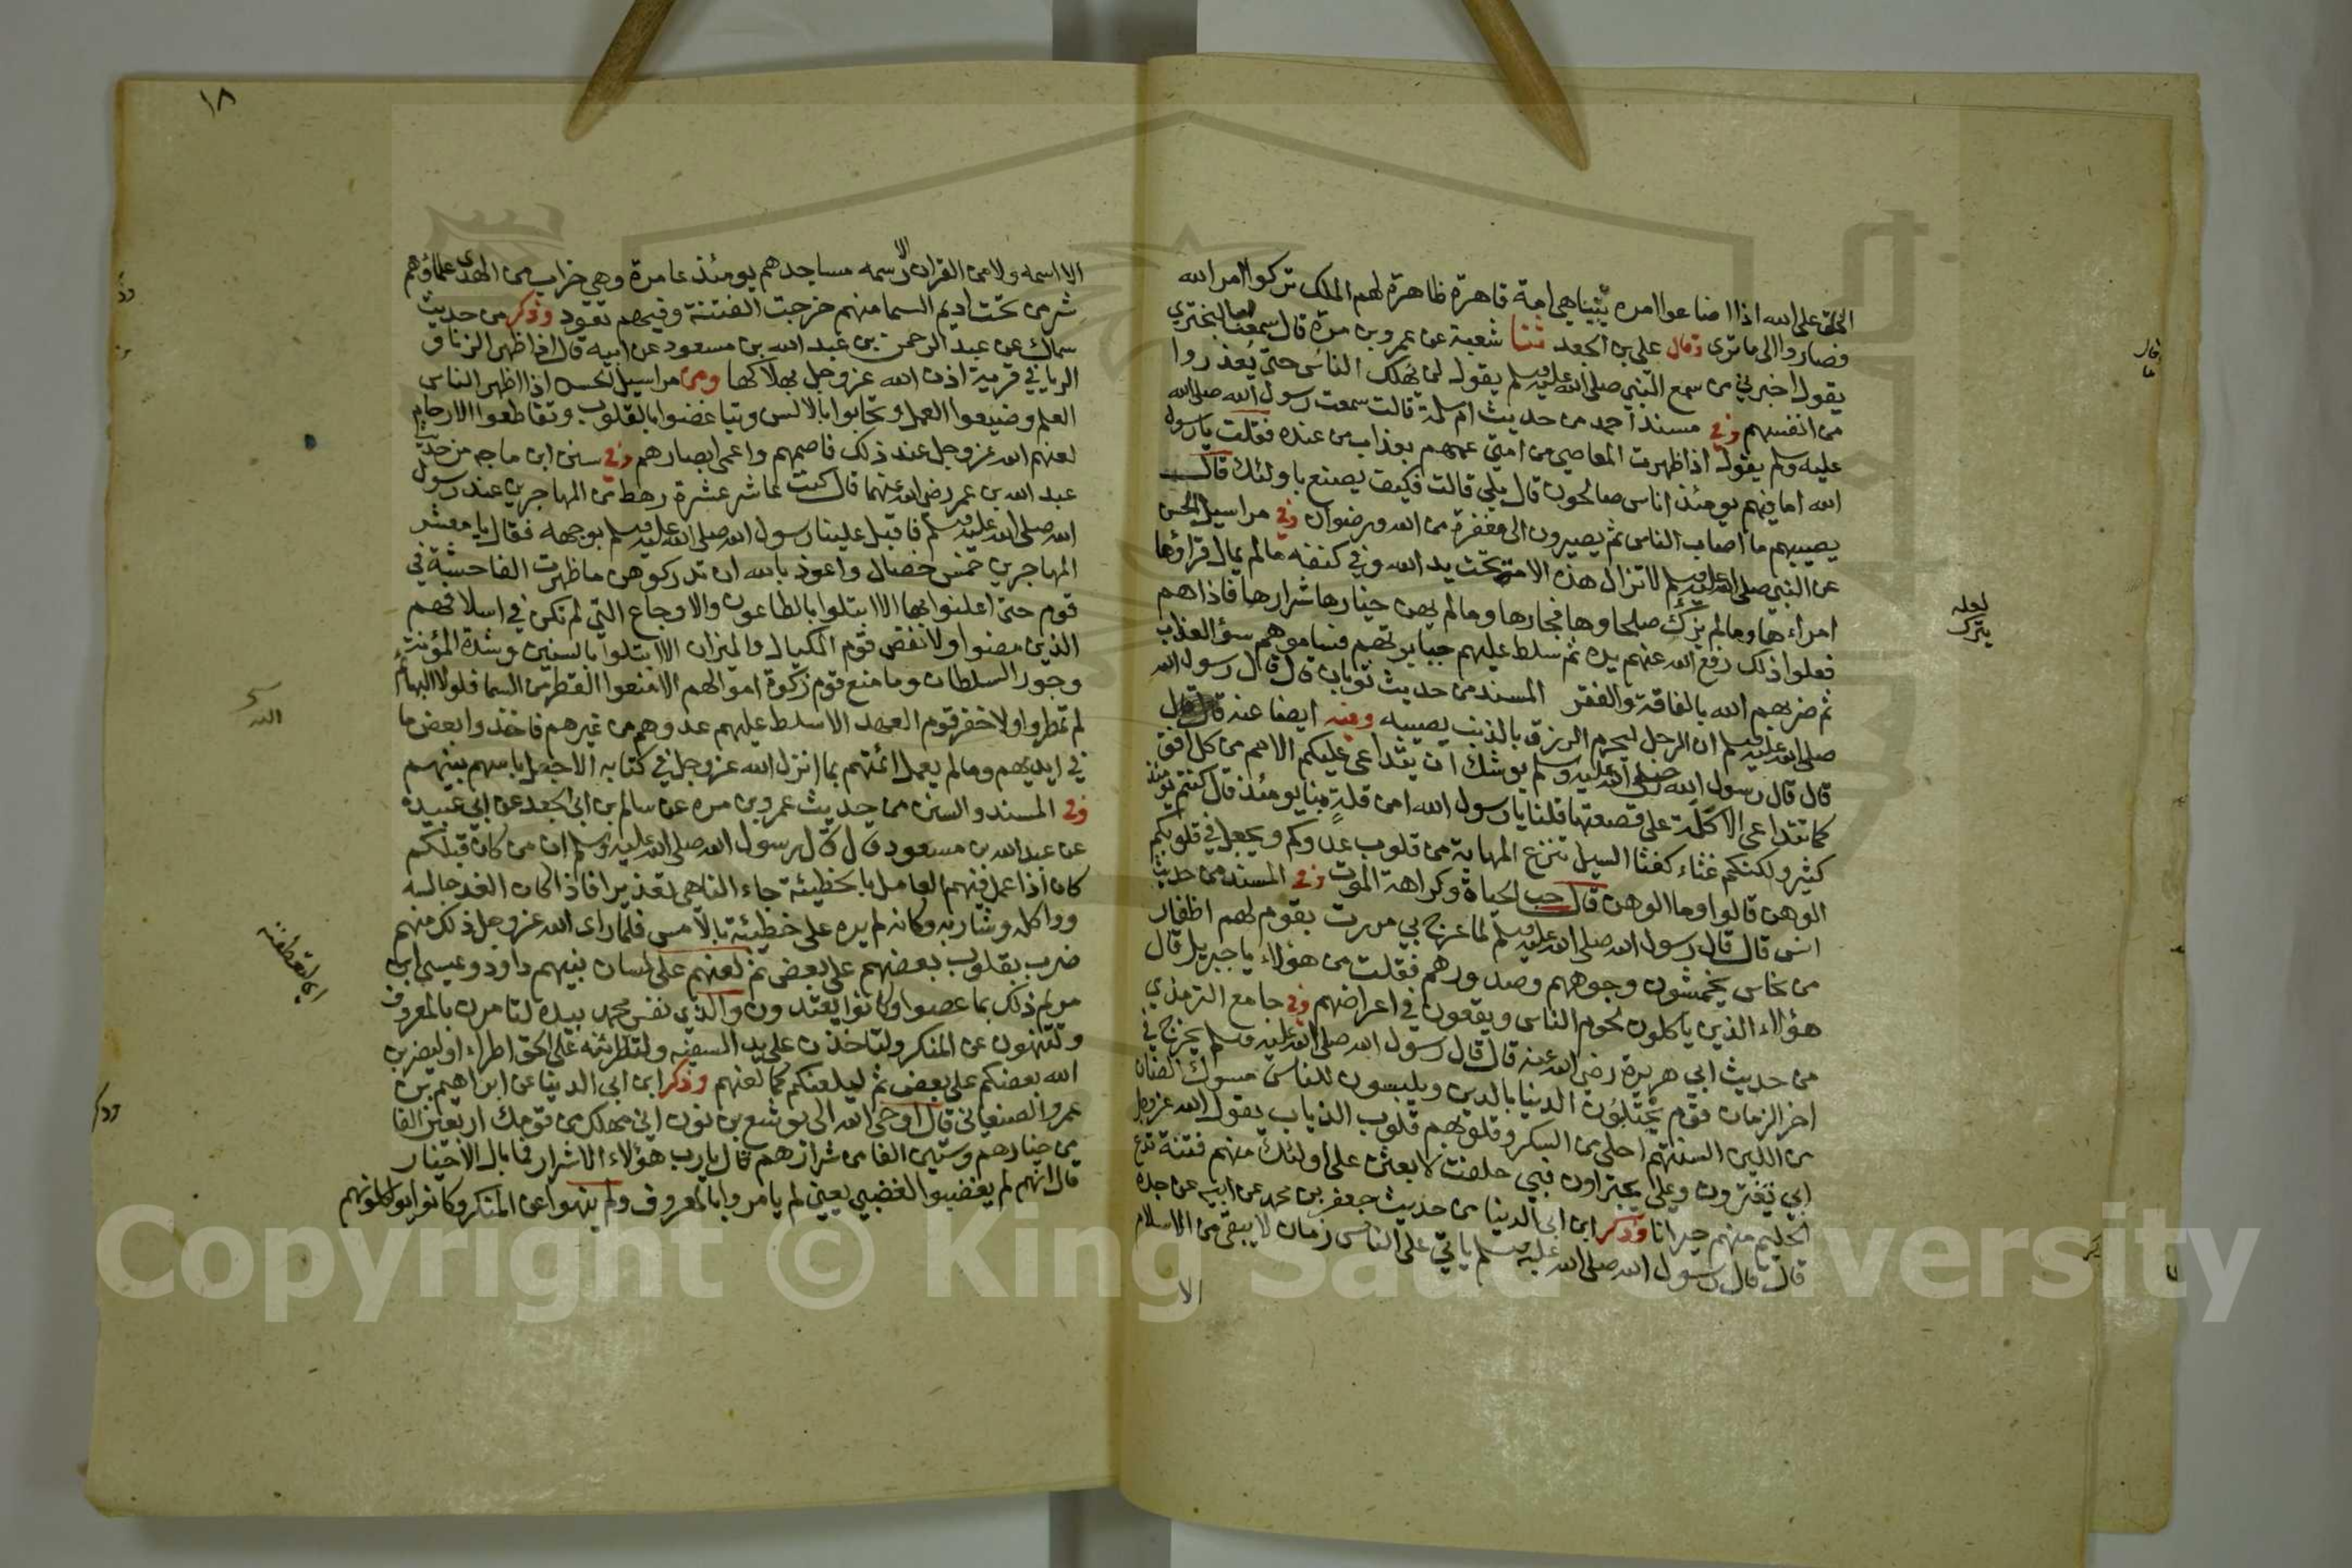 الخلق على الله اذا اضاعوا امره بينا هي امة قاهرة ظاهرة لهم الملك تركوا امر الله
فصاروا الى ما ترى وقال علي بن الجعد ثنا شعبة عن عمرو بن مرة قال سمعت ابا البختري
يقول اخبرني من سمع النبي صلى الله عليه وسلم يقول لن يهلك الناس حتى يعذروا
من انفسهم وفي مسند احمد من حديث ام سلمة قالت سمعت رسول الله صلى الله
عليه وسلم يقول اذا ظهرت المعاصي من امتي عمهم بعذاب من عنده فقلت يا رسول
الله اما فيهم يومئذ اناس صالحون قال بلى قالت فكيف يصنع باولئك قال
يصيبهم ما اصاب الناس ثم يصيرون الى مغفرة من الله ورضوان وفي مراسيل الحسن
عن النبي صلى الله عليه وسلم لا تزال هذه الامة تحت يد الله وفي كنفه ما لم يمال قراؤها
امراءها وما لم يزك صلحاوها فجارها وما لم يهن خيارها شرارها فاذا هم
فعلوا ذلك رفع الله عنهم يده ثم سلط عليهم جبابرتهم فساموهم سؤ العذاب
ثم ضربهم الله بالفاقة والفقر المسند من حديث ثوبان قال قال رسول الله
صلى الله عليه وسلم ان الرجل ليحرم الرزق بالذنب يصيبه وفيه ايضا عنه قال
قال قال رسول الله صلى الله عليه وسلم يوشك ان يتداعى عليكم الامم من كل افق
كما تتداعى الاكلة على قصعتها قلنا يا رسول الله امن قلة بنا يومئذ قال كنتم يومئذ
كثير ولكنكم غثاء كغثا السيل تنزع المهابة من قلوب عدوكم ويجعل في قلوبكم
الوهن قالوا وما الوهن قال حب الحياة وكراهة الموت وفي المسند من حديث
انس قال قال رسول الله صلى الله عليه وسلم لما عرج بي مررت بقوم لهم اظفار
من نحاس يخمشون وجوههم وصدورهم فقلت من هؤلاء يا جبريل قال
هؤلاء الذين ياكلون لحوم الناس ويقعون في اعراضهم وفي جامع الترمذي
من حديث ابي هريرة رضي الله عنه قال قال رسول الله صلى الله عليه وسلم يخرج في
اخر الزمان قوم يختلون الدنيا بالدين ويلبسون للناس مسوك الضان
من اللين السنتهم احلى من السكر وقلوبهم قلوب الذياب يقول الله عز وجل
ابي تغترون وعلي يجتراون فبي حلفت لابعثن على اولئك منهم فتنة تدع
الحليم منهم حيرانا وذكر ابن ابي الدنيا من حديث جعفر بن محمد عن ابيه عن جده
قال قال رسول الله صلى الله عليه وسلم ياتي على الناس زمان لا يبقى من الاسلام
الا
لعله
يترك
١٨
الا اسمه ولا من القران الا رسمه مساجدهم يومئذ عامرة وهي خراب من الهدى علماؤهم
شر من تحت اديم السما منهم خرجت الفتنة وفيهم تعود وذكر من حديث
سماك عن عبد الرحمن بن عبد الله بن مسعود عن ابيه قال اذا ظهر الزنا و
الربا في قرية اذن الله عز وجل بهلاكها ومن مراسيل الحسن اذا اظهر الناس
العلم وضيعوا العمل وتحابوا بالالسن وتباغضوا بالقلوب وتقاطعوا الارحام
لعنهم الله عز وجل عند ذلك فاصمهم واعمى ابصارهم وفي سنن ابن ماجه من حديث
عبد الله بن عمر رضي الله عنهما قال كنت عاشر عشرة رهط من المهاجرين عند رسول
الله صلى الله عليه وسلم فاقبل علينا رسول الله صلى الله عليه وسلم بوجهه فقال يا معشر
المهاجرين خمس خصال واعوذ بالله ان تدركوهن ما ظهرت الفاحشة في
قوم حتى اعلنوا بها الا ابتلوا بالطاعون والاوجاع التي لم تكن في اسلافهم
الذين مضوا ولا نقص قوم المكيال والميزان الا ابتلوا بالسنين وشدة المؤنة
وجور السلطان وما منع قوم زكوة اموالهم الا منعوا القطر من السما فلولا البهائم
لم تمطروا ولا خفر قوم العهد الا سلط عليهم عدوهم من غيرهم فاخذوا بعض ما
في ايديهم وما لم يعمل ائمتهم بما انزل الله عز وجل في كتابه الا جعل باسهم بينهم
وفي المسند والسنن من حديث عمرو بن مره عن سالم بن ابي الجعد عن ابي عبيدة
عن عبد الله بن مسعود قال قال رسول الله صلى الله عليه وسلم ان من كان قبلكم
كان اذا عمل فيهم العامل بالخطيئة جاء الناهي تعذيرا فاذا كان الغد جالسه
وواكله وشاربه وكانه لم يره على خطيئة بالامس فلما راى الله عز وجل ذلك منهم
ضرب بقلوب بعضهم على بعض ثم لعنهم على لسان نبيهم داود وعيسى ابن
مريم ذلك بما عصوا وكانوا يعتدون والذي نفس محمد بيده لتامرن بالمعروف
وتنهون عن المنكر ولتاخذن على يد السفيه ولتاطرنه على الحق اطراء او ليضربن
الله بعضكم على بعض ثم ليلعنكم كما لعنهم وذكر ابن ابي الدنيا عن ابراهيم بن
عمرو الصنعاني قال اوحى الله الى يوشع بن نون اني مهلك من قومك اربعين الفا
من خيارهم وستين الفا من شرارهم قال يا رب هؤلاء الاشرار فما بال الاخيار
قال انهم لم يغضبوا لغضبي يعني لم يامروا بالمعروف ولم ينهوا عن المنكر وكانوا يواكلونهم
Copyright © King Saud University